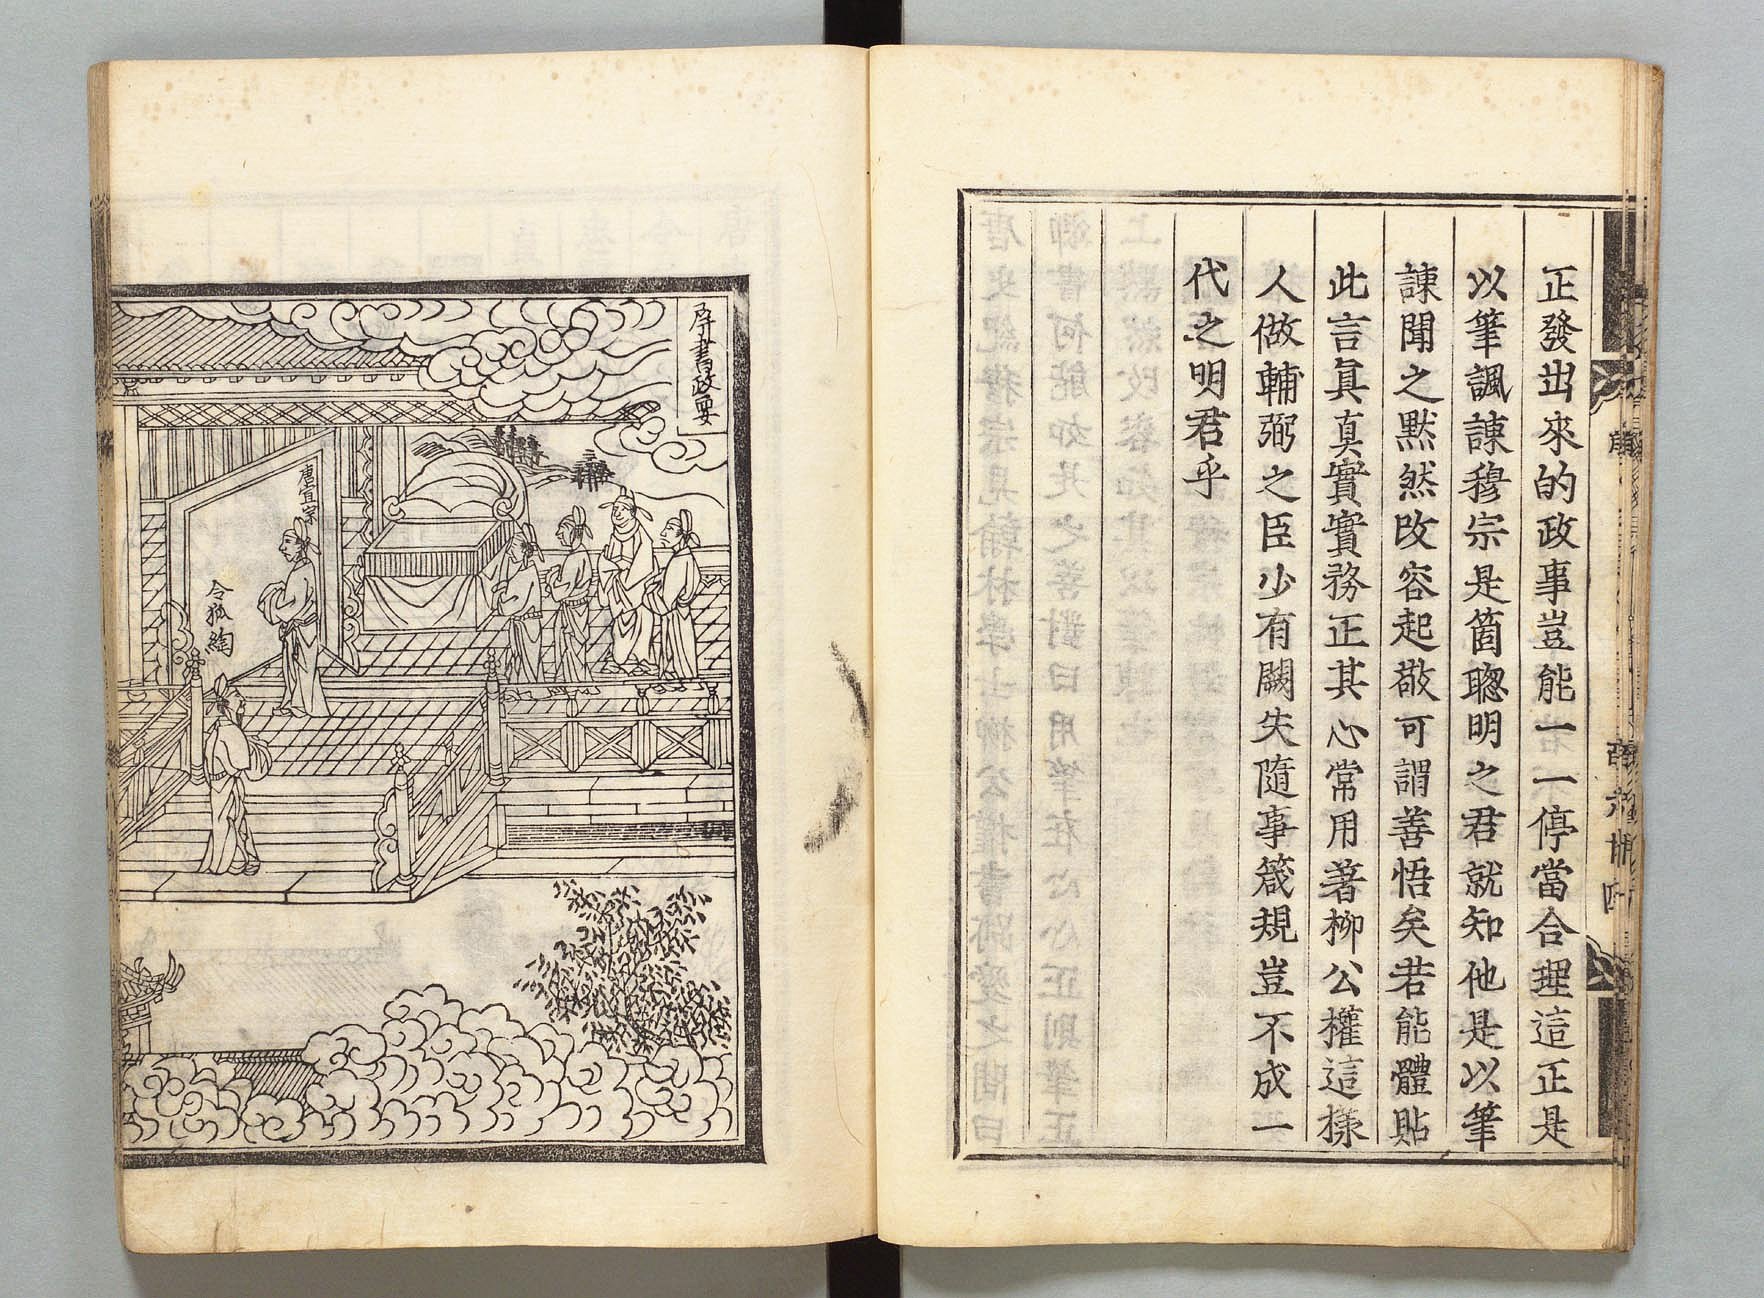 正發出來的政事豈能一一停當合理這正是
以筆諷諌穆宗是箇聰明之君就知他是以筆
諌聞之黙然改容起敬可謂善悟矣若能體貼
此言眞眞實實務正其心常用著柳公權這樣
人做輔弼之臣少有闕失隨事箴規豈不成一
代之明君乎
屏書政要
唐宣宗
令狐綯